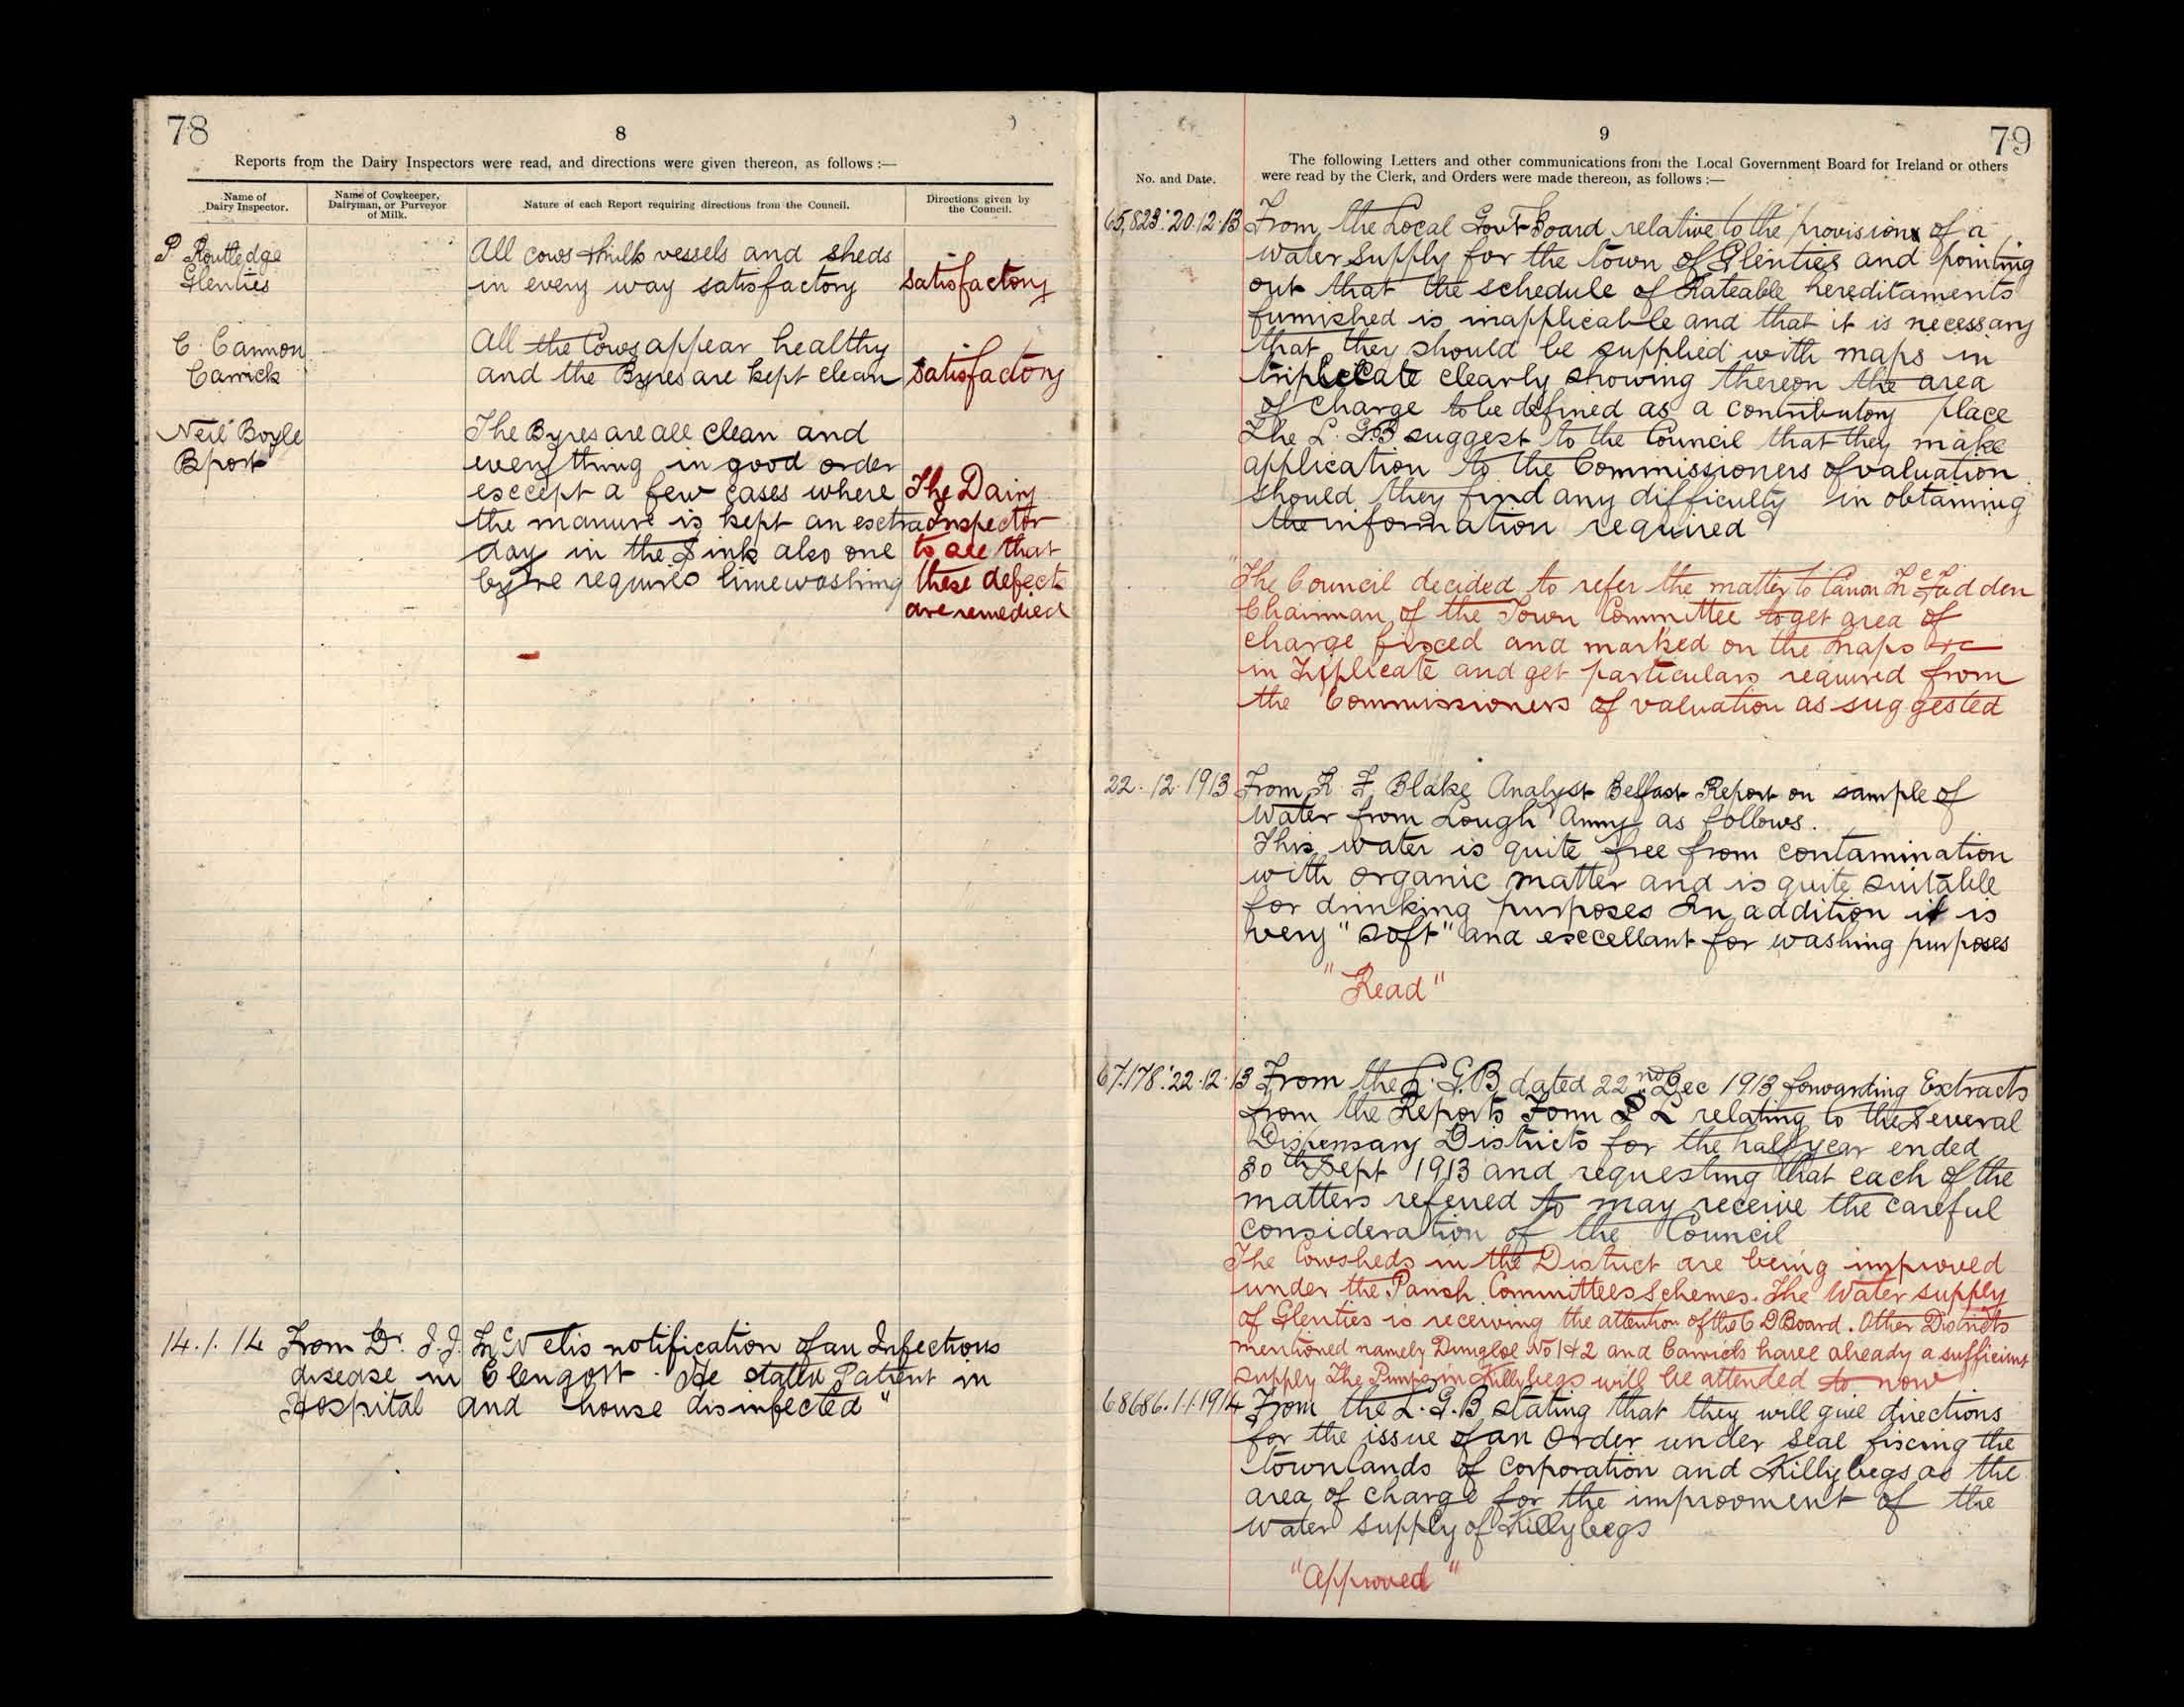 78
8
Reports from the Dairy Inspectors were read, and directions were given thereon, as follows :—
Name of Dairy Inspector.
Name of Cowkeeper, Dairyman, or Purveyor of Milk.
Nature of each Report requiring directions from the Council.
Directions given by the Council.
P Routledge
Glenties
All cows & milk vessels and sheds
in every way satisfactory
satisfactory
C. Cannon
Carrick
All the Cows appear healthy
and the Byres are kept clean
satisfactory
Neil Boyle
Bport
The Byres are all clean and
everything in good order
except a few cases where
the manure is kept an extra
day in the Sink also one
byre requires limewashing
The Dairy
Inspector
to see that
these defects
are remedied
14.1.14 From Dr. J.J. McNelis notification of an Infectious
disease in . He states Patient in
Hospital and house disinfected"
9
79
No. and Date.
The following Letters and other communications from the Local Government Board for Ireland or others
were read by the Clerk, and Orders were made thereon, as follows :—
65,823:20.12.13 From the Local Govt Board relative to the provision of a
water supply for the town of Glenties and pointing
out that the schedule of Rateable hereditaments
furnished is inapplicable and that it is necessary
that they should be supplied with maps in
triplicate clearly showing thereon the area
of charge to be defined as a contributory place
The L. G.B suggest to the Council that they make
application to the Commissioners of valuation
should they find any difficulty in obtaining
the information required
"The Council decided to refer the matter to Canon McFadden
Chairman of the Town Committee to get area of
charge fixed and marked on the maps &c
in Triplicate and get particulars required from
the Commissioners of valuation as suggested
22.12.1913 From R. F. Blake Analyst Belfast Report on sample of
Water from Lough as follows.
This water is quite free from contamination
with organic matter and is quite suitable
for drinking purposes In addition it is
very "soft" and excellant for washing purposes
"Read"
67.178:22.12.13 From the L. G.B dated 22nd Dec 1913 forwarding Extracts
from the Reports Form L relating to the several
Dispensary Districts for the half year ended
30th Sept 1913 and requesting that each of the
matters referred to may receive the careful
consideration of the Council
The Cowsheds in the District are being improved
under the Parish Committees Schemes. The Water supply
of Glenties is receiving the attention of the C D Board. Other Districts
mentioned namely Dungloe No 1 & 2 and Carrick have already a sufficient
supply The Pump in Killybegs will be attended to now
68686.1.1.1914 From the L.G.B stating that they will give directions
for the issue of an Order under seal fixing the
townlands of Corporation and Killybegs as the
area of charge for the improoment of the
water supply of Killybegs
"Approved"